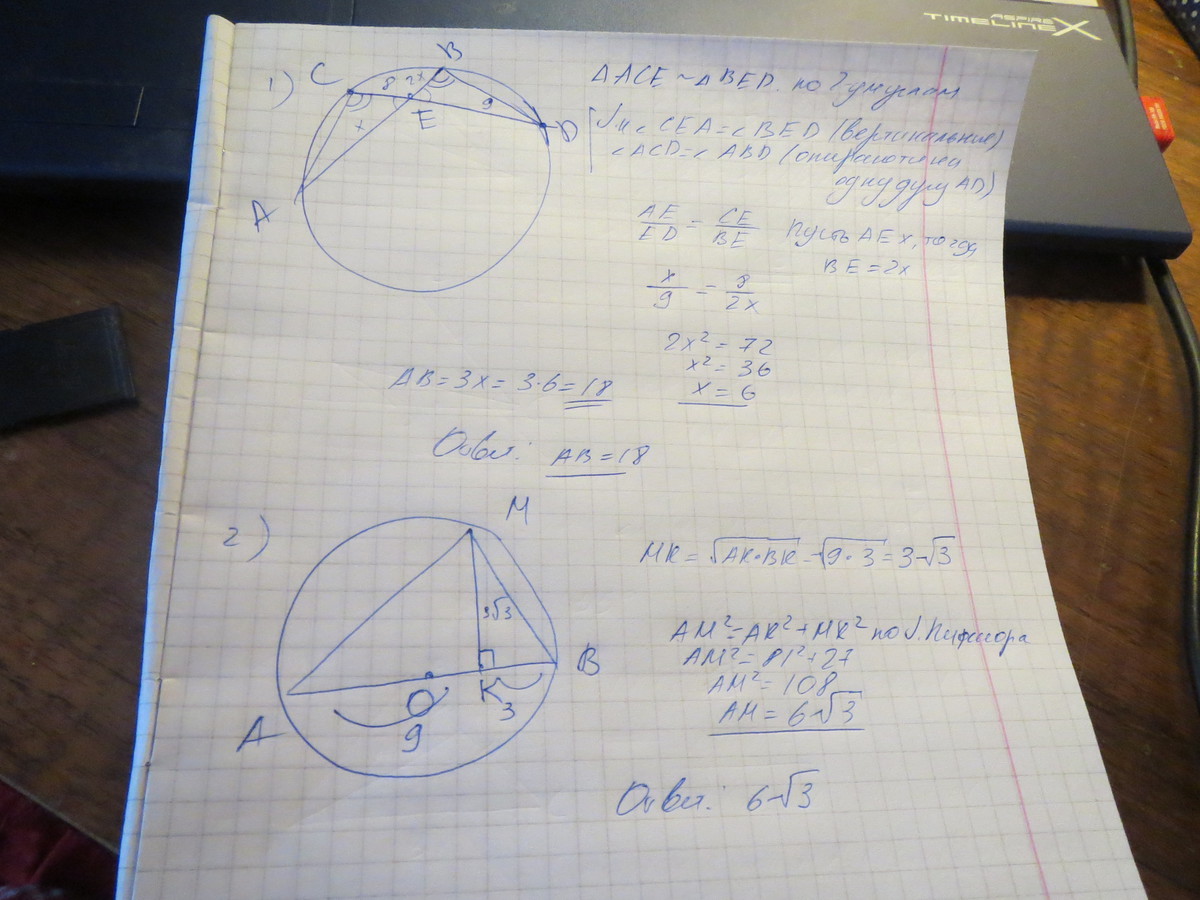 ASPIRE
TIMELINEX
1)
C
8
2x
B
x
E
9
D
A
ΔACE ~ ΔBED. по 2 ум углам
т.к < CEA = < BED (вертикальные)
< ACD = < ABD (опираются на
одну дугу AD)
AE/ED = CE/BE
Пусть AE x, тогда
BE = 2x
x/9 = 8/2x
2x² = 72
x² = 36
x = 6
AB = 3x = 3·6 = 18
Ответ: AB = 18
2)
M
3√3
A
O
K
B
9
3
MK = √AK·BK = √9·3 = 3√3
AM² = AK² + MK² по т. Пифагора
AM² = 81² + 27
AM² = 108
AM = 6√3
Ответ: 6√3